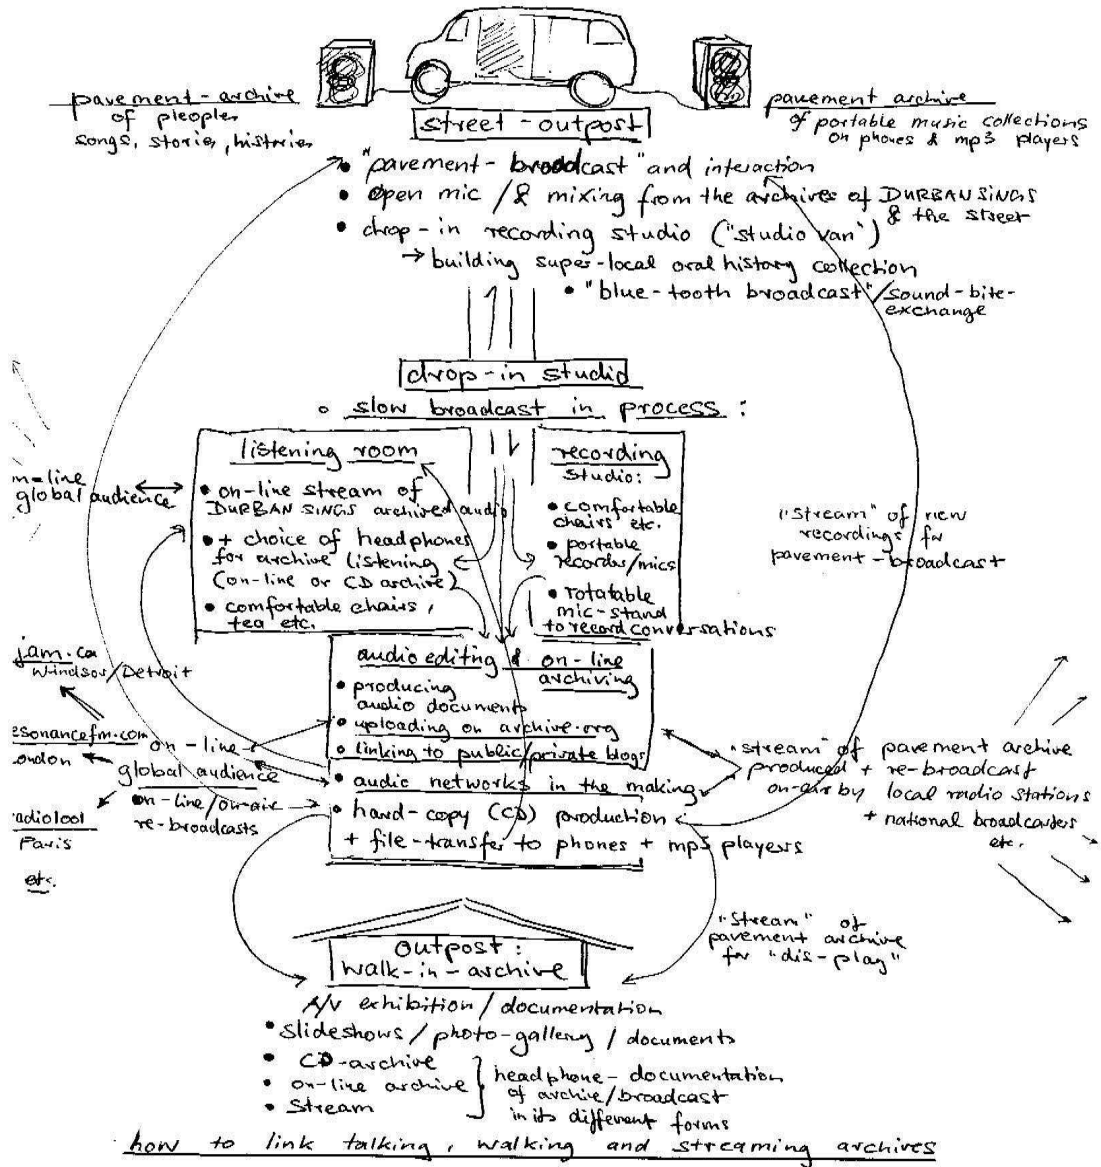 pavement-archive
of pleoples
songs, stories, histories
pavement archive
of portable music collections
on phones & mp3 players
street-outpost
• "pavement-broadcast" and interaction
• open mic /& mixing from the archives of DURBAN SINGS
& the street
• drop-in recording studio ("studio van")
→ building super-local oral history collection
• "blue-tooth broadcast"/sound-bite-
exchange
drop-in studio
o slow broadcast in process:
listening room
• on-line stream of
DURBAN SINGS archived audio
• + choice of headphones
for archive listening
(on-line or CD archive)
• comfortable chairs,
tea etc.
recording
studio:
• comfortable
chairs etc.
• portable
recorder/mics
• rotatable
mic-stand
to record conversations
n-line
global audience
"stream" of new
recordings for
pavement-broadcast
audio editing & on-line
archiving
• producing
audio documents
• uploading on archive.org
• linking to public/private blogs
• audio networks in the making
• hard-copy (CD) production
+ file-transfer to phones + mp3 players
jam.ca
Windsor/Detroit
esonancefm.com
ondon
adiolool
Paris
etc.
on-line
global audience
on-line/on-air
re-broadcasts
"stream" of pavement archive
produced + re-broadcast
on-air by local radio stations
+ national broadcasters
etc.
"stream" of
pavement archive
for "dis-play"
outpost:
walk-in-archive
A/V exhibition/documentation
• slideshows/photo-gallery/documents
• CD-archive
• on-line archive
• stream
headphone-documentation
of archive/broadcast
in its different forms
how to link talking, walking and streaming archives